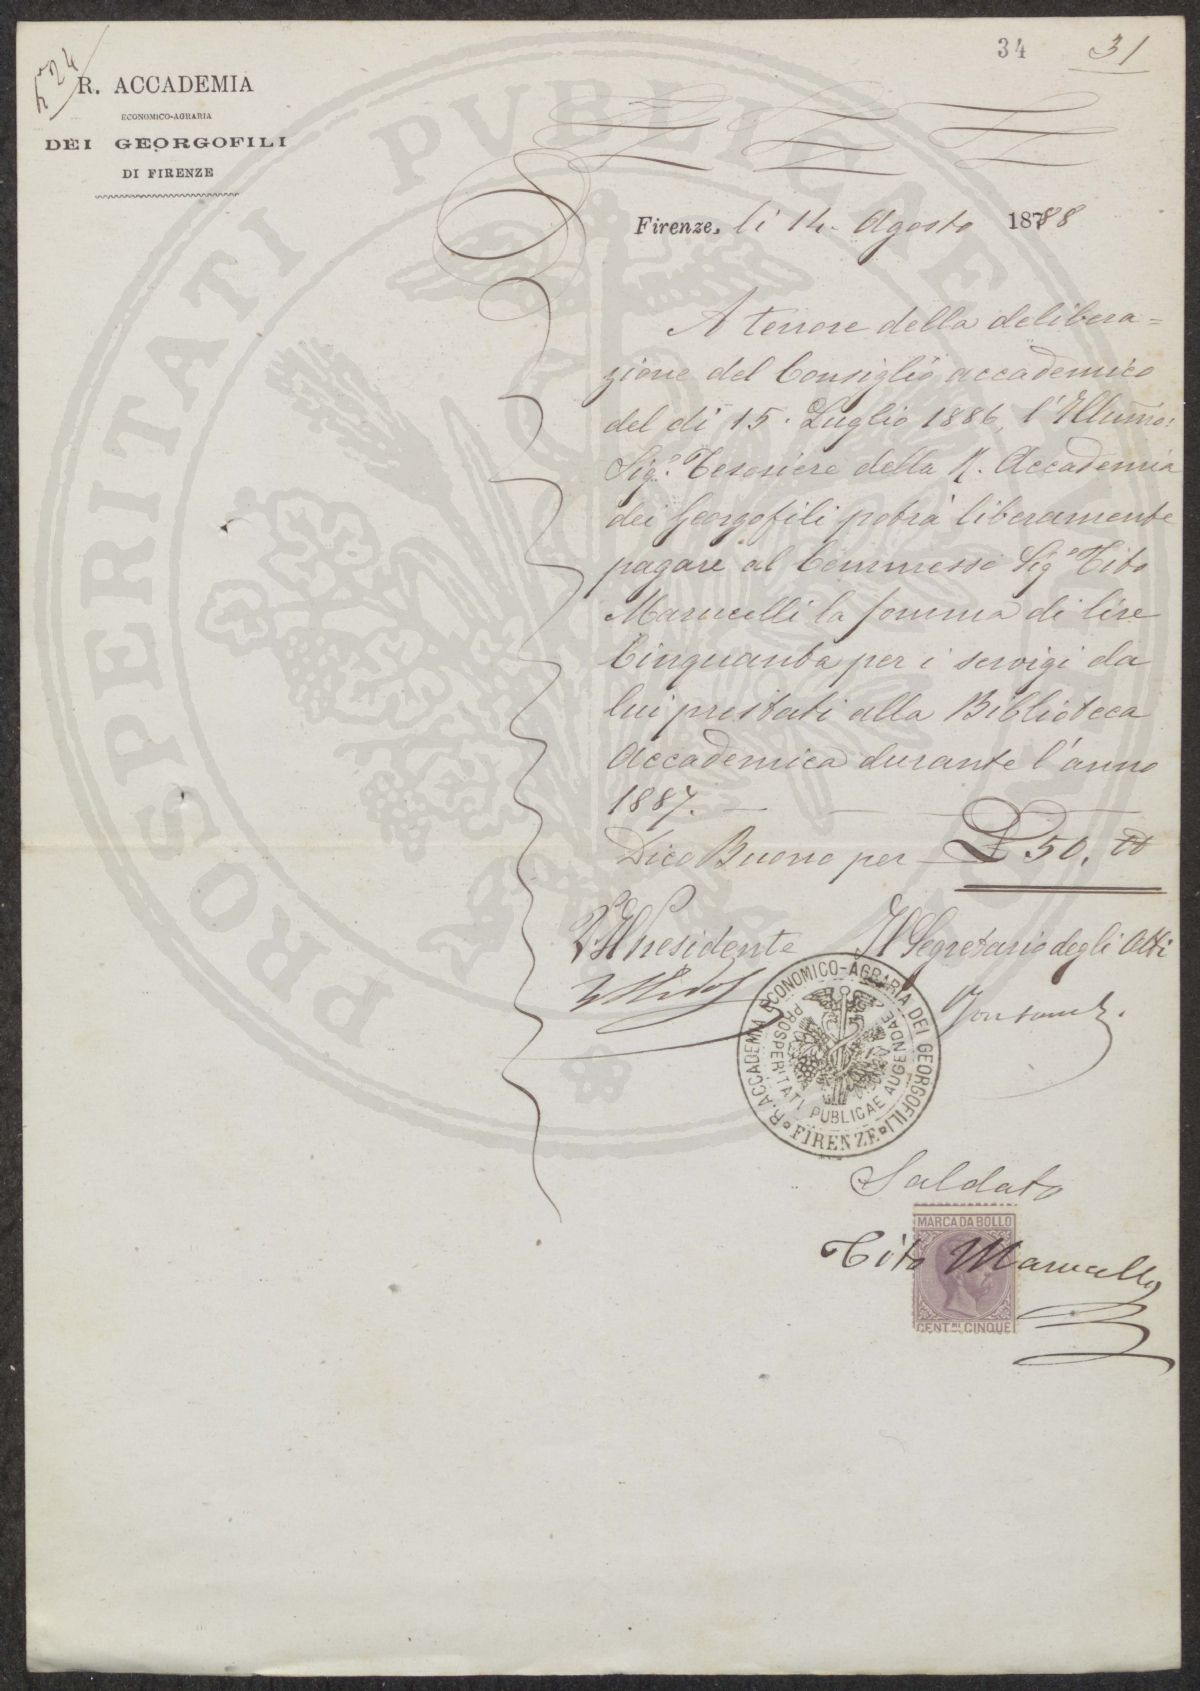 34 31
N° 24
R. ACCADEMIA
ECONOMICO-AGRARIA
DEI GEORGOFILI
DI FIRENZE
Firenze, li 14. Agosto 1888
A tenore della delibera=
zione del Consiglio accademico
del dì 15. Luglio 1886, l'Illumo:
Sigr. Tesoriere della R. Accademia
dei Georgofili potrà liberamente
pagare al Commesso Sigr Tito
Marucelli la somma di lire
Cinquanta per i servigi da
lui prestati alla Biblioteca
Accademica durante l'anno
1887. —
Dico Buono per £ 50.
Il Presidente Il Segretario degli Atti
R. ACCADEMIA ECONOMICO-AGRARIA DEI GEORGOFILI
PROSPERITATI PUBLICAE AUGENDAE
FIRENZE
Saldato
MARCA DA BOLLO
Tito Marucelli
CENT.MI CINQUE
PROSPERITATI PVBLICAE